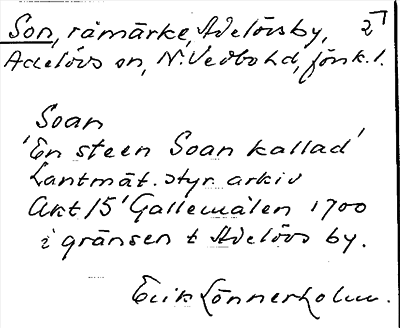 Son, råmärke, Adelövsby, 27
Adelövs sn, N. Vedbo hd, Jönk. l.
Soan
'En steen Soan kallad'
Lantmät. styr. arkiv
Akt 15 'Gallemålen 1700
i gränsen t Adelövs by.
Erik Lönnerholm.